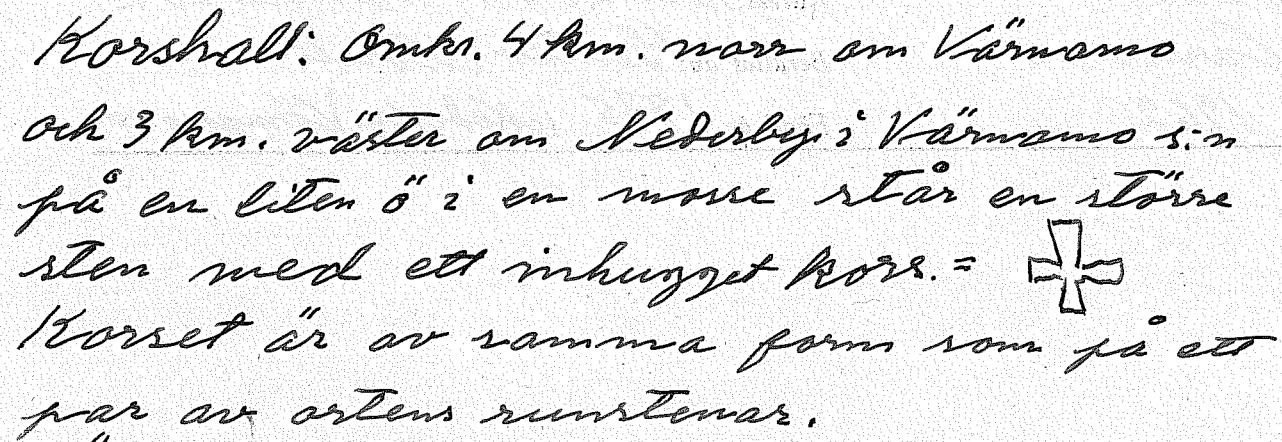 Korshall: Omkr. 4 km. norr om Värnamo
och 3 km. väster om Nederby i Värnamo s:n
på en liten ö i en mosse står en större
sten med ett inhugget kors. =
Korset är av samma form som på ett
par av ortens runstenar.